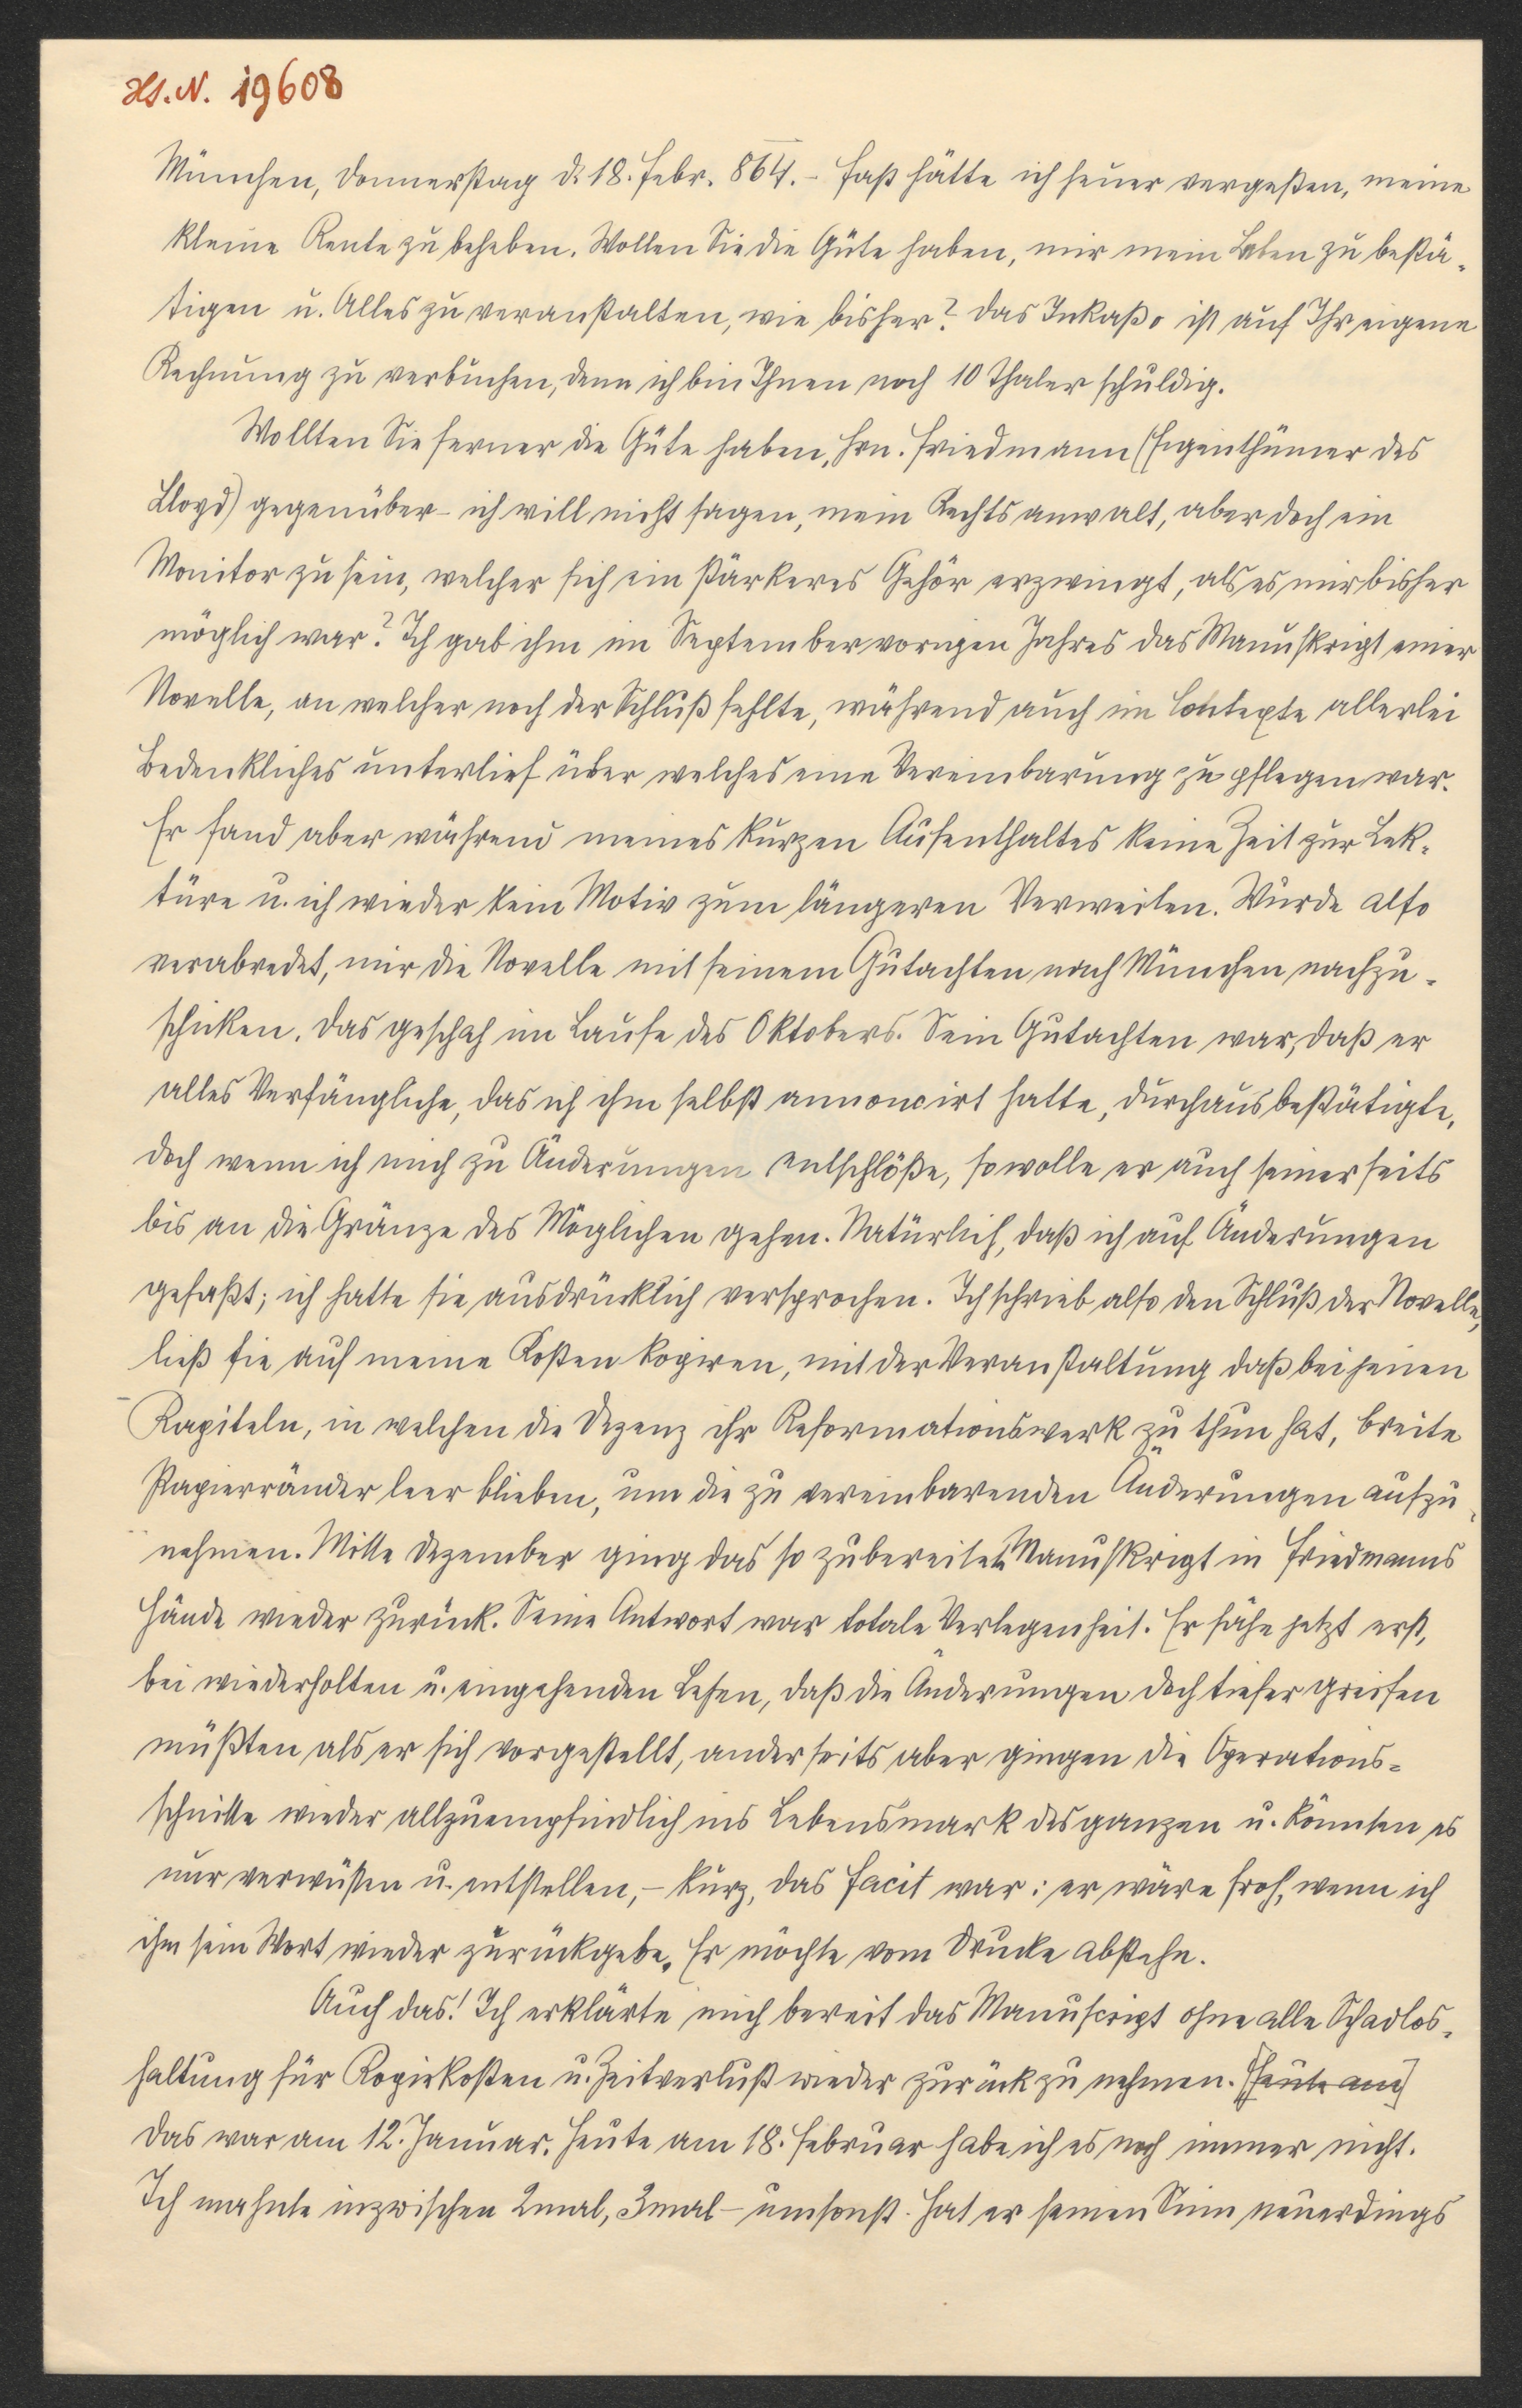 Hs. N. 19608
München, Donnerstag d. 18. Febr. 864. – Fast hätte ich heuer vergeßen, meine
kleine Rente zu beheben. Wollen Sie die Güte haben, mir mein Leben zu bestä-
tigen u. Alles zu veranstalten, wie bisher? Das Inkaßo ist auf Ihr eigene
Rechnung zu verbuchen, denn ich bin Ihnen noch 10 Thaler schuldig.
Wollten Sie ferner die Güte haben, Hrn. Friedmann (Eigenthümer des
Lloyd) gegenüber – ich will nicht sagen, mein Rechtsanwalt, aber doch ein
Monitor zu sein, welcher sich ein stärkeres Gehör erzwingt, als es mir bisher
möglich war? Ich gab ihm im September vorigen Jahres das Manuskript einer
Novelle, an welcher noch der Schluß fehlte, während auch im Contexte allerlei
Bedenkliches unterlief über welches eine Vereinbarung zu pflegen war.
Er fand aber während meines kurzen Aufenthaltes keine Zeit zur Lek-
türe u. ich wieder kein Motiv zum längeren Verweilen. Wurde also
verabredet, mir die Novelle mit seinem Gutachten nach München nachzu-
schicken. Das geschah im Laufe des Oktobers. Sein Gutachten war, daß er
alles Verfängliche, das ich ihm selbst annoncirt hatte, durchaus bestätigte,
doch wenn ich mich zu Änderungen entschlöße, so wolle er auch seinerseits
bis an die Gränze des Möglichen gehen. Natürlich, daß ich auf Änderungen
gefaßt; ich hatte sie ausdrücklich versprochen. Ich schrieb also den Schluß der Novelle,
ließ sie auf meine Kosten kopiren, mit der Veranstaltung daß bei jenen
Kapiteln, in welchen die Dezenz ihr Reformationswerk zu thun hat, breite
Papierränder leer blieben, um die zu vereinbarenden Änderungen aufzu-
nehmen. Mitte Dezember ging das so zubereitete Manuskript in Friedmanns
Hände wieder zurück. Seine Antwort war totale Verlegenheit. Er sähe jetzt erst,
bei wiederholten u. eingehenden Lesen, daß die Änderungen doch tiefer greifen
müßten als er sich vorgestellt, anderseits aber gingen die Operations-
schnitte wieder allzuempfindlich ins Lebensmark des ganzen u. könnten es
nur verwüsten u. entstellen, – kurz, das Facit war: er wäre froh, wenn ich
ihm sein Wort wieder zurückgebe. Er möchte vom Drucke abstehn.
Auch das! Ich erklärte mich bereit das Manuscript ohne alle Schadlos-
haltung für Kopirkosten u. Zeitverlust wieder zurück zu nehmen. [Heute am]
Das war am 12. Januar. Heute am 18. Februar habe ich es noch immer nicht.
Ich mahnte inzwischen 2mal, 3mal – umsonst. Hat er seinen Sinn neuerdings